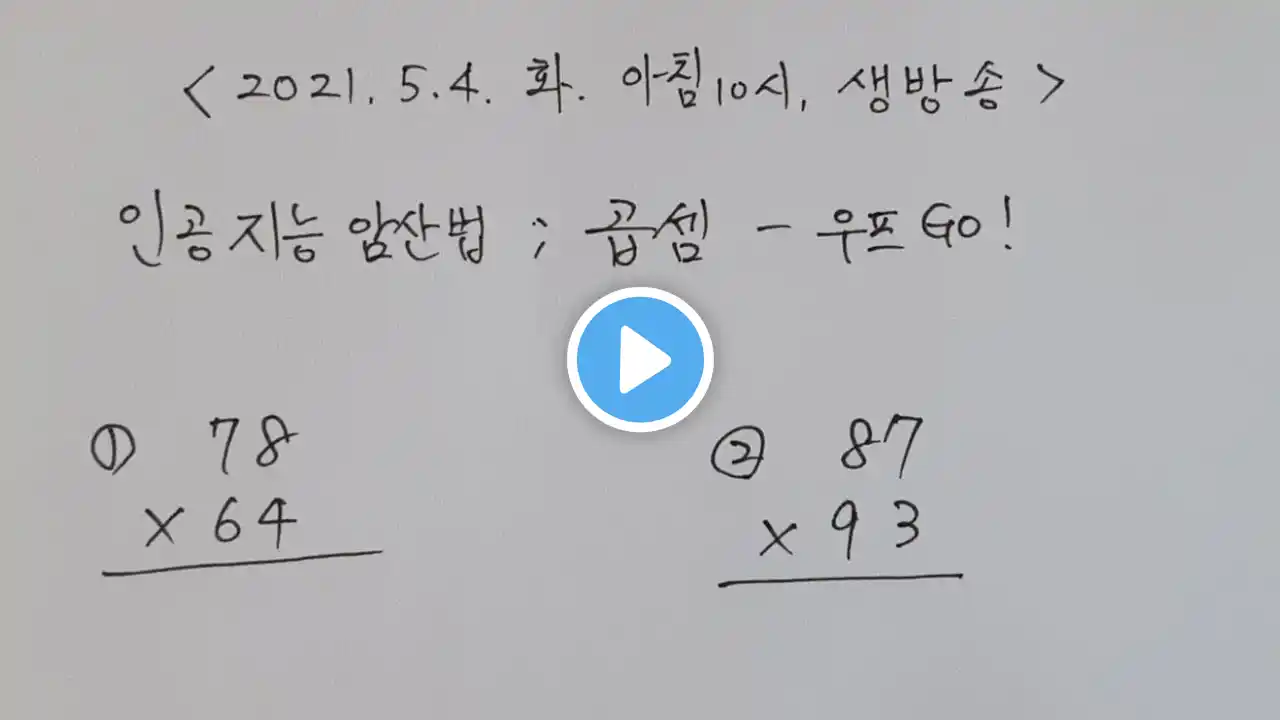 < 2021. 5.4. 화. 아침10시, 생방송 >
인공지능 암산법 ; 곱셈 - 우프 Go!
① 78
× 64
② 87
× 93